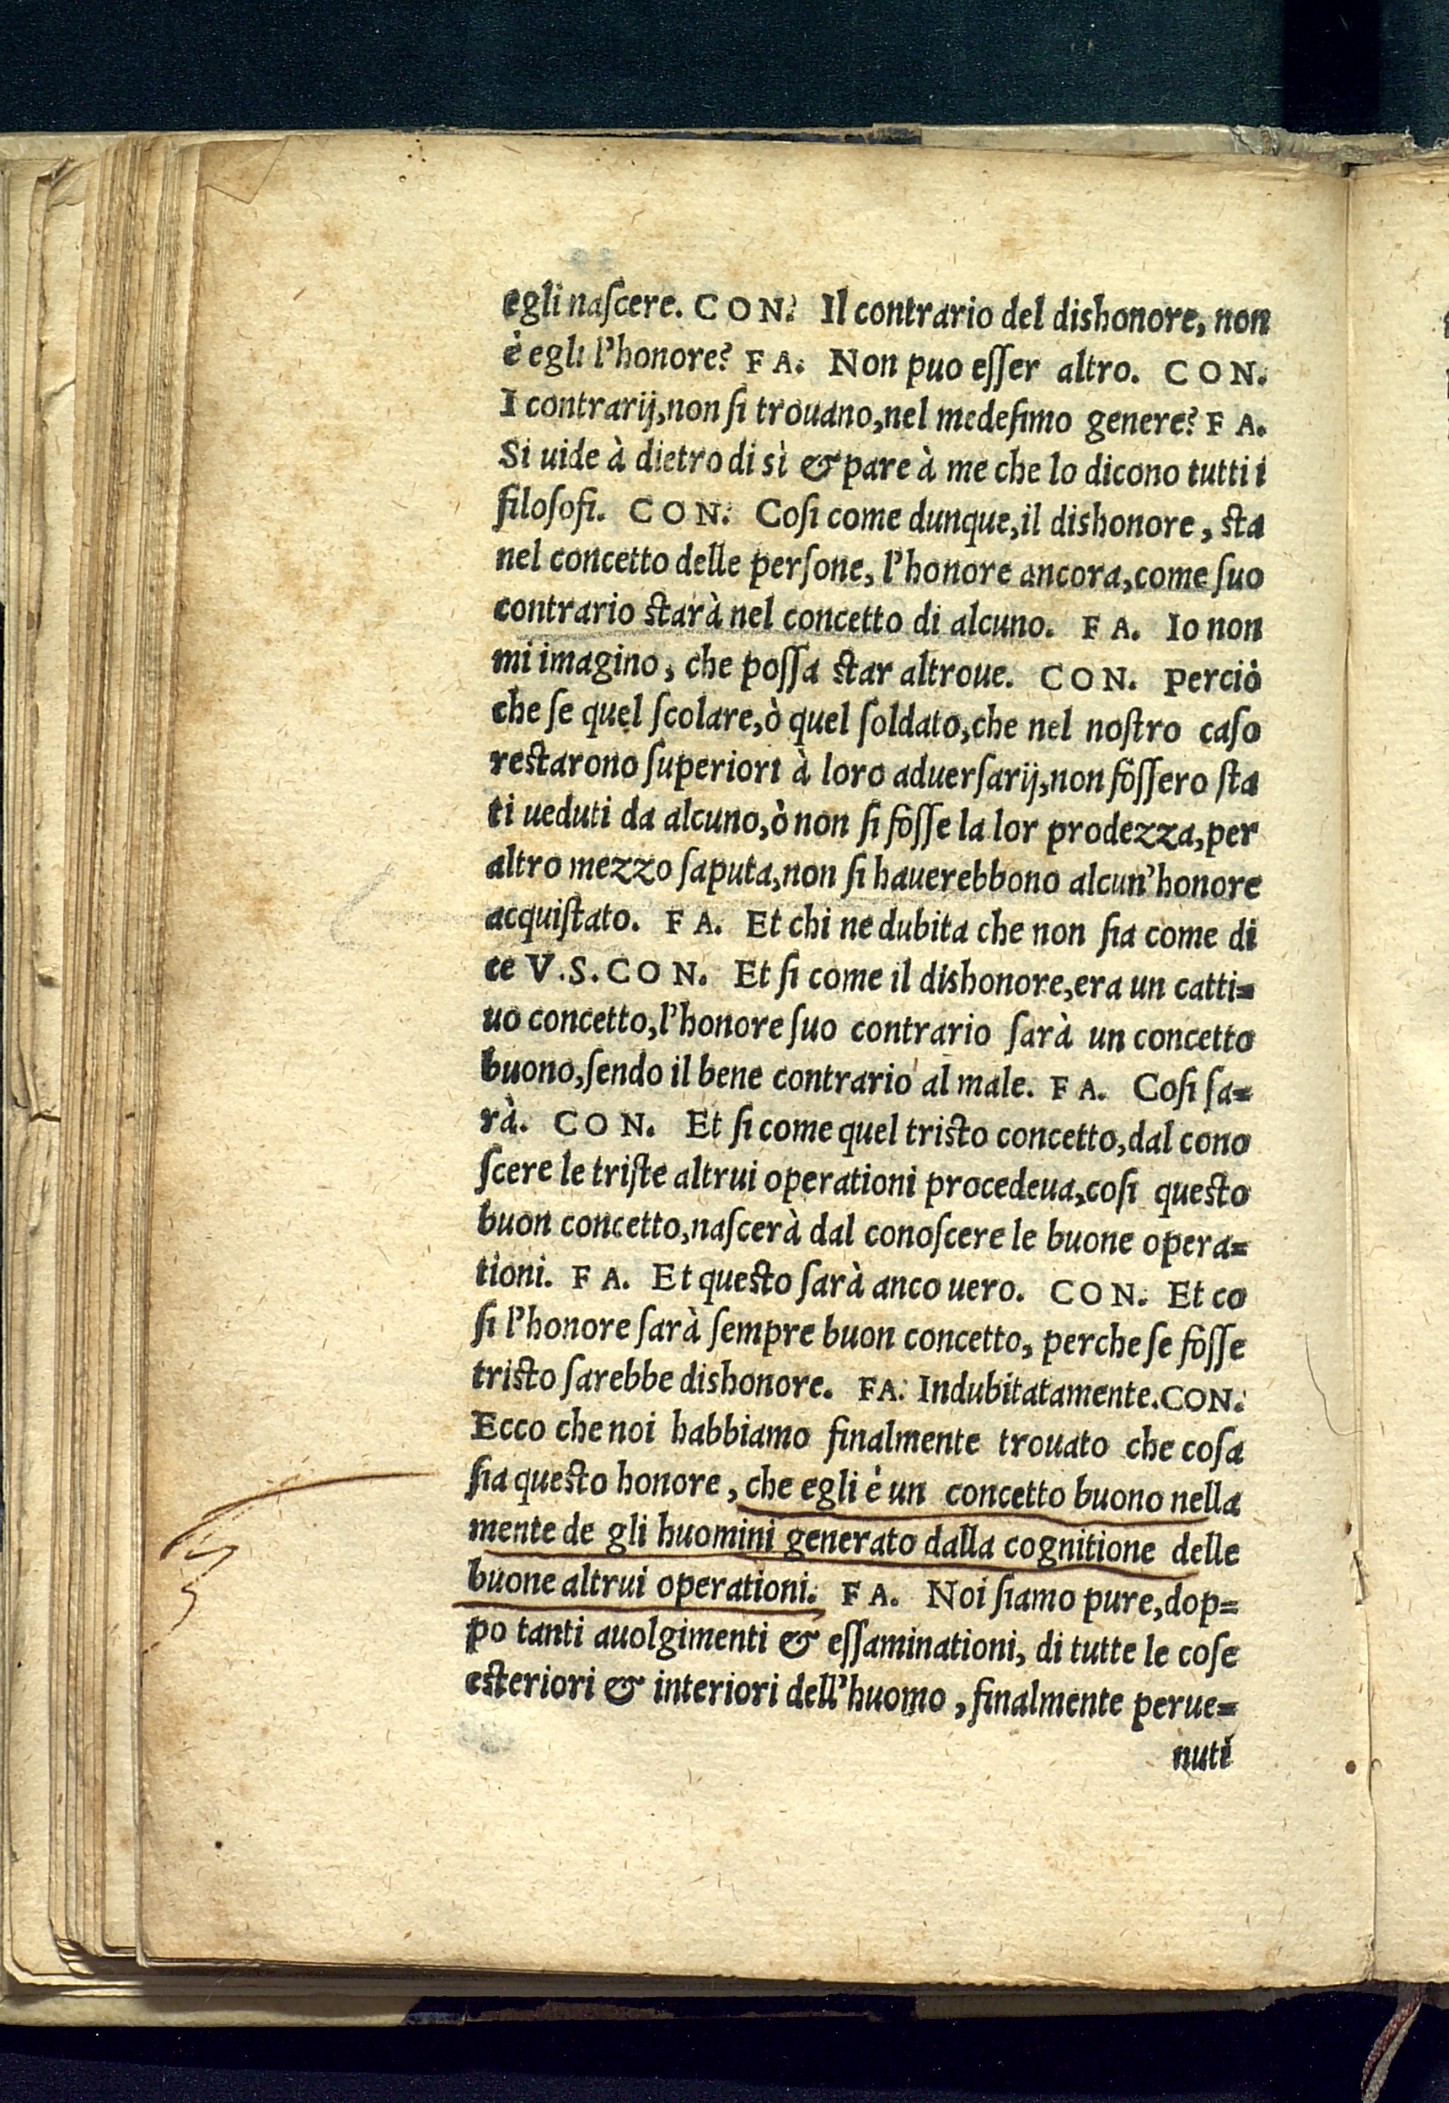 egli naſcere. CON. Il contrario del dishonore, non
è egli l'honore? FA. Non puo eſſer altro. CON.
I contrarij, non ſi trouano, nel medeſimo genere? FA.
Si uide à dietro di sì & pare à me che lo dicono tutti i
filoſofi. CON. Coſi come dunque, il dishonore, sta
nel concetto delle perſone, l'honore ancora, come ſuo
contrario starà nel concetto di alcuno. FA. Io non
mi imagino, che poſſa star altroue. CON. Perciò
che ſe quel ſcolare, ò quel ſoldato, che nel noſtro caſo
restarono ſuperiori à loro aduerſarij, non foſſero ſta
ti ueduti da alcuno, ò non ſi foſſe la lor prodezza, per
altro mezzo ſaputa, non ſi hauerebbono alcun'honore
acquiſtato. FA. Et chi ne dubita che non ſia come di
ce V.S. CON. Et ſi come il dishonore, era un catti=
uo concetto, l'honore ſuo contrario ſarà un concetto
buono, ſendo il bene contrario al male. FA. Coſi ſa=
rà. CON. Et ſi come quel tristo concetto, dal cono
ſcere le triſte altrui operationi procedeua, coſi questo
buon concetto, naſcerà dal conoſcere le buone opera=
tioni. FA. Et questo ſarà anco uero. CON. Et co
ſi l'honore ſarà ſempre buon concetto, perche ſe foſſe
tristo ſarebbe dishonore. FA. Indubitatamente. CON.
Ecco che noi habbiamo finalmente trouato che coſa
ſia questo honore, che egli è un concetto buono nella
mente de gli huomini generato dalla cognitione delle
buone altrui operationi. FA. Noi ſiamo pure, dop=
po tanti auolgimenti & eſſaminationi, di tutte le coſe
esteriori & interiori dell'huomo, finalmente perue=
nuti